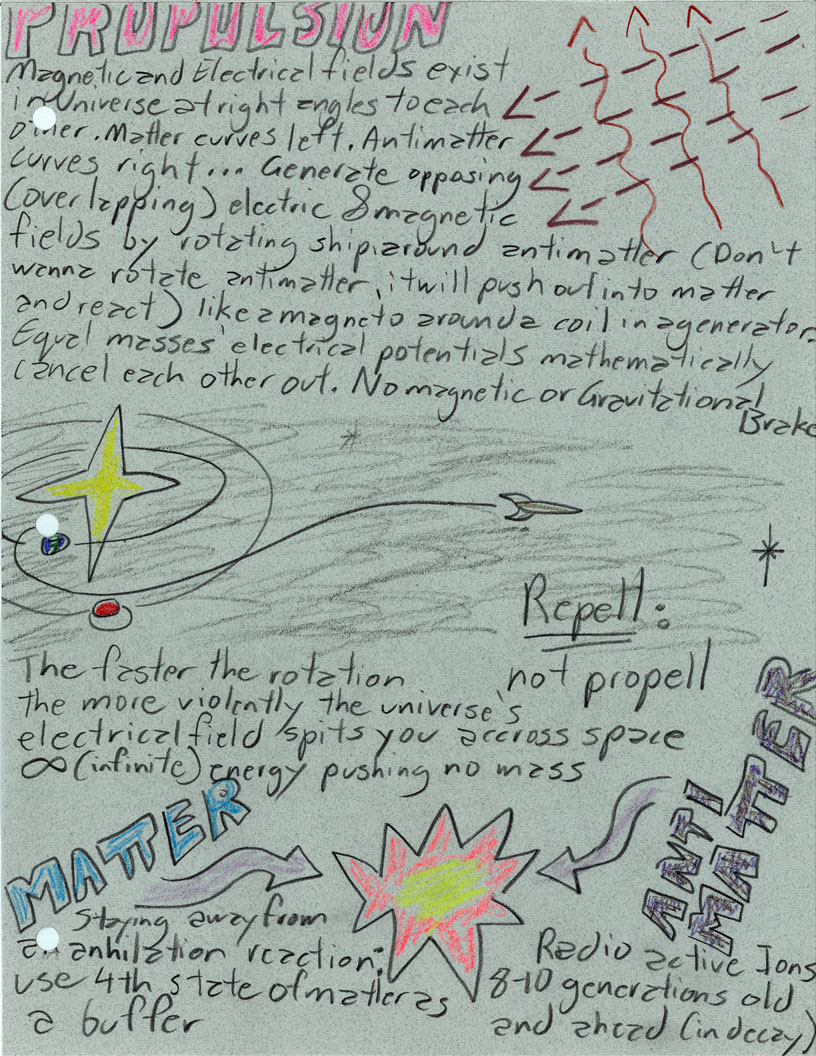 PROPULSION
Magnetic and Electrical fields exist
in Universe at right angles to each
other. Matter curves left. Antimatter
curves right... Generate opposing
(overlapping) electric & magnetic
fields by rotating ship around antimatter (Don't
wanna rotate antimatter, it will push out into matter
and react) like a magneto around a coil in a generator.
Equal masses' electrical potentials mathematically
cancel each other out. No magnetic or Gravitational
Brake
Repell:
not propell
The faster the rotation
the more violently the universe's
electrical field spits you accross space
∞ (infinite) energy pushing no mass
MATTER
ANTI
MATTER
Staying away from
an anhilation reaction:
use 4th state of matter as
a buffer
Radio active Ions
8-10 generations old
and ahead (in decay)